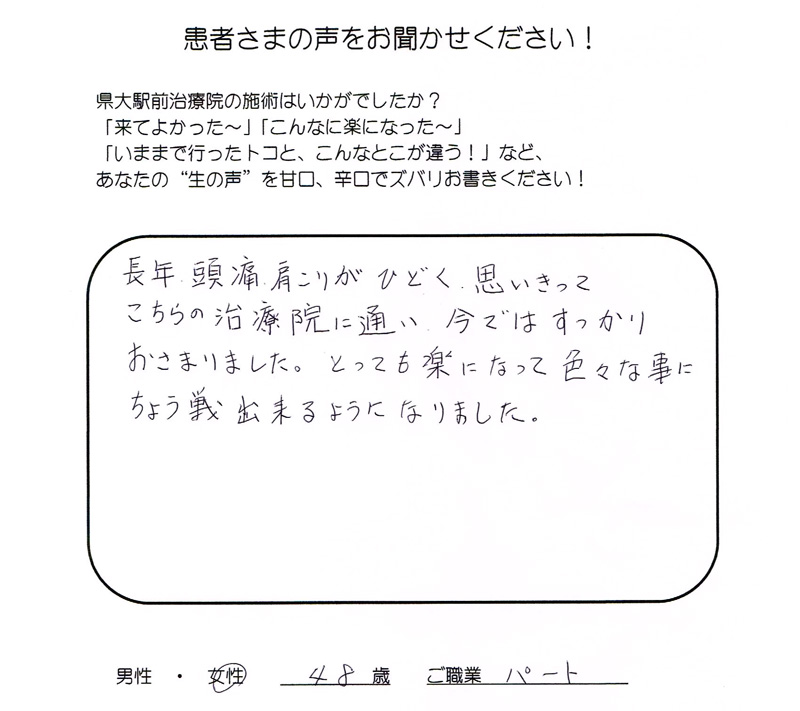 患者さまの声をお聞かせください！
県大駅前治療院の施術はいかがでしたか？
「来てよかった～」「こんなに楽になった～」
「いままで行ったトコと、こんなとこが違う！」など、
あなたの“生の声”を甘口、辛口でズバリお書きください！
長年、頭痛、肩こりが ひどく、思いきって
こちらの治療院に通い、今では すっかり
おさまりました。とっても楽になって色々な事に
ちょう戦出来るようになりました。
男性 ・ 女性 48 歳 ご職業 パート